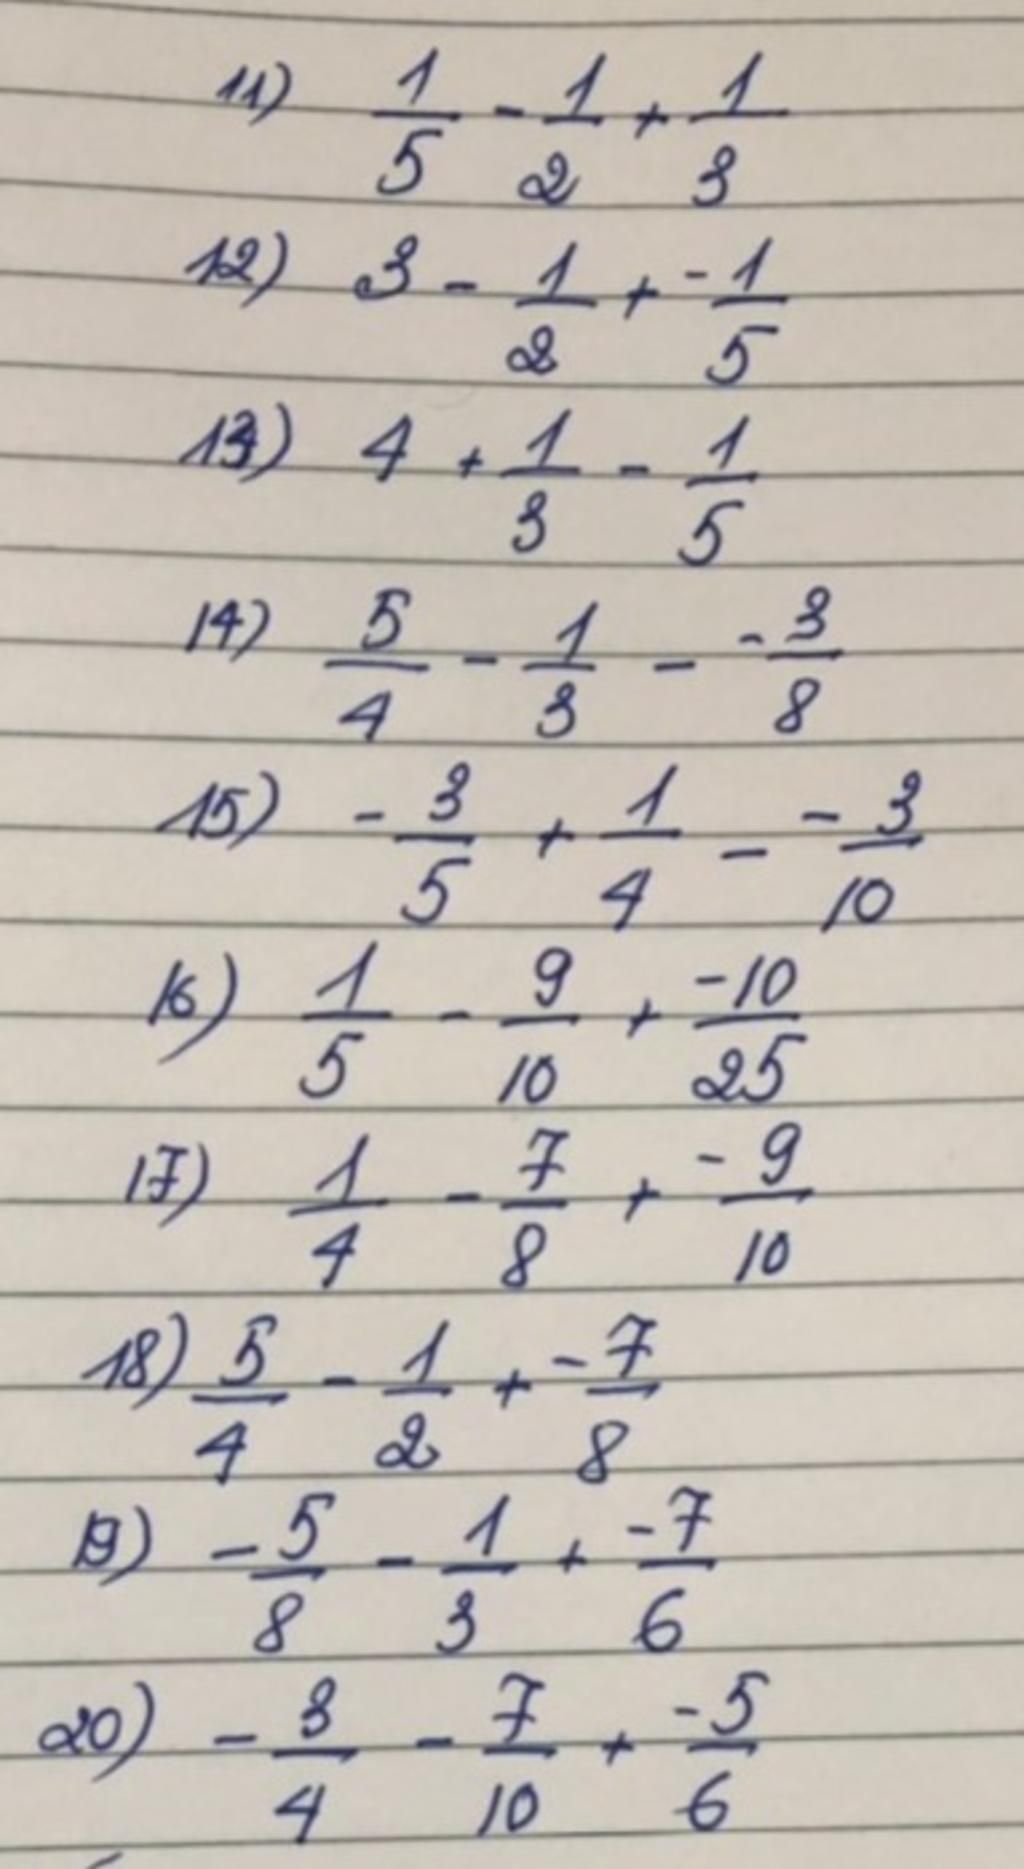 11) 1/5 - 1/2 + 1/3
12) 3 - 1/2 + -1/5
13) 4 + 1/3 - 1/5
14) 5/4 - 1/3 - -3/8
15) -3/5 + 1/4 - -3/10
16) 1/5 - 9/10 + -10/25
17) 1/4 - 7/8 + -9/10
18) 5/4 - 1/2 + -7/8
19) -5/8 - 1/3 + -7/6
20) -3/4 - 7/10 + -5/6